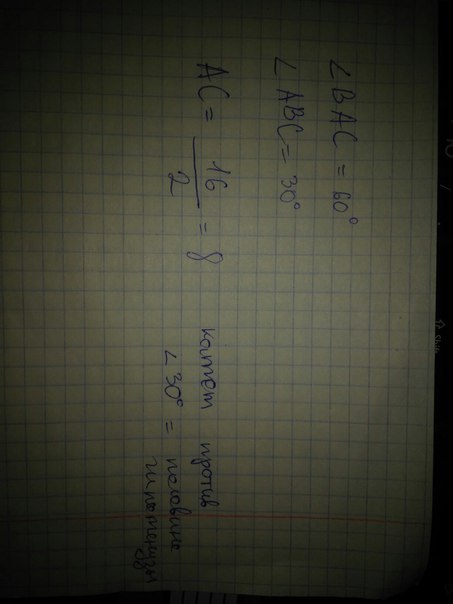 ∠BAC = 60°
∠ABC = 30°
AC = 16/2 = 8 катет против
∠30° = половине
гипотенузы